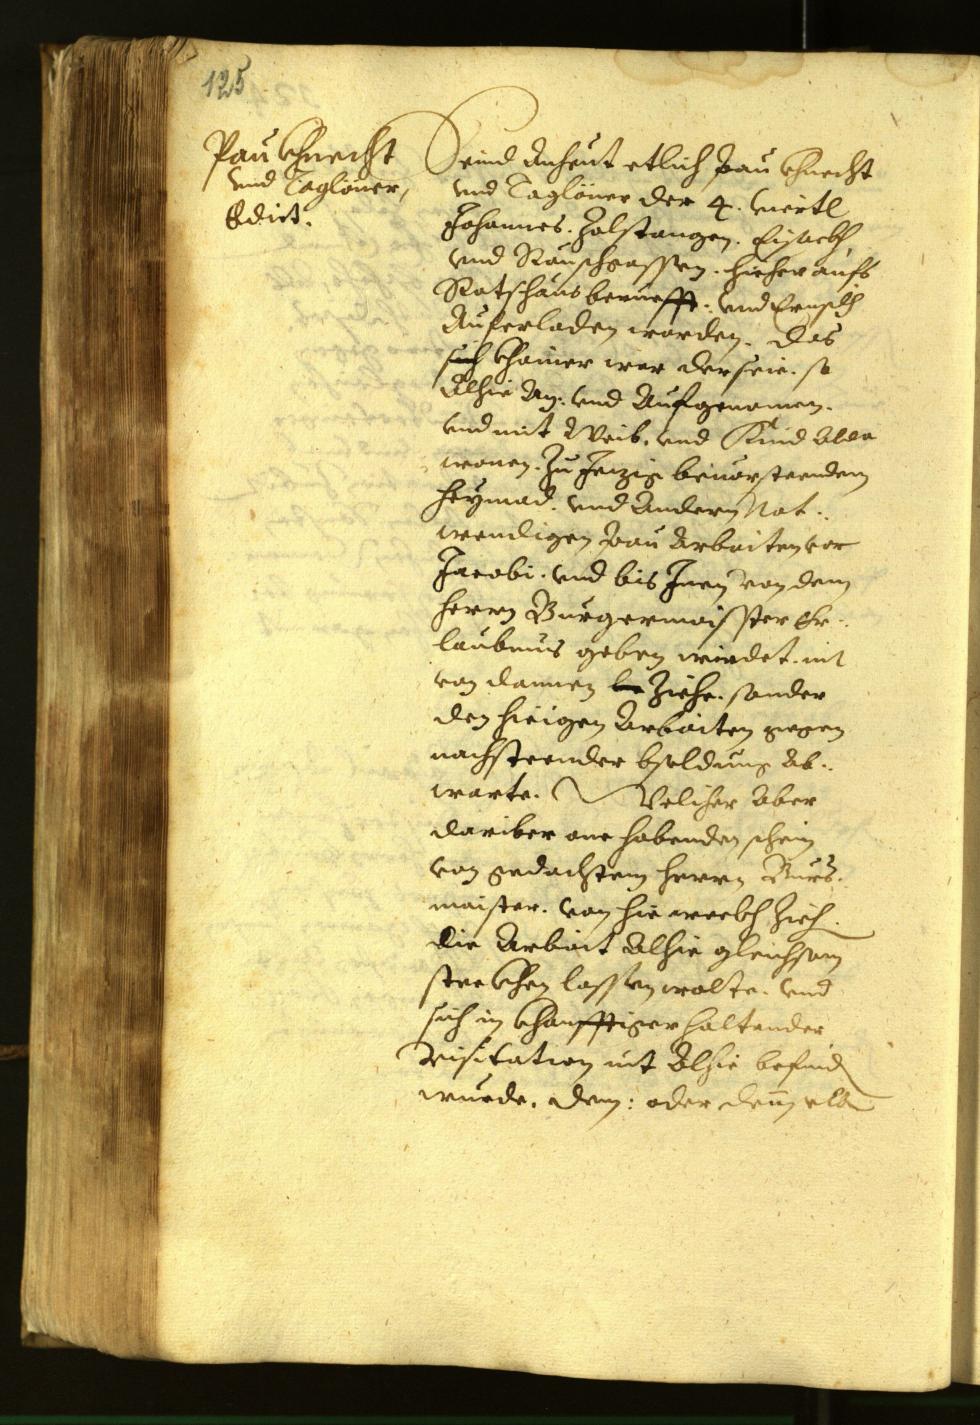 125
Pau Khnecht
vnd Taglöner,
Edict.
Seind anheut etlich Pau Khnecht
vnd Taglöner der 4. viertl
Johannes. Zolstangen. Eisackh,
vnd Rauschgassen. hieher aufs
Ratshaus berueft. vnd Ernstlich
Auferladen worden. das
sich khainer wer der seie. so
alhie an: vnd Aufgenomen.
vnd mit Weib. vnd Kind alda
wonen. zu Jezig beuorsteendem
heymad. vnd andern Not:
wendigen Pau Arbaiten vor
Jacobi. vnd bis Inen von dem
herrn Burgermaister Er:
laubnus geben wirdet. nit
von dannen ziehe. sonder
den hieigen Arbaiten gegen
nachsteender bsoldung ab:
warte. Welicher aber
dariber one habenden schein
von gedachtem herrn Burg:
maister. von hie weckh zieh.
die Arbait alhie gleichsam
steckhen lassen wolte. vnd
sich in khonfftiger haltender
visitation nit alhie befind
wurde. dem: oder denselben